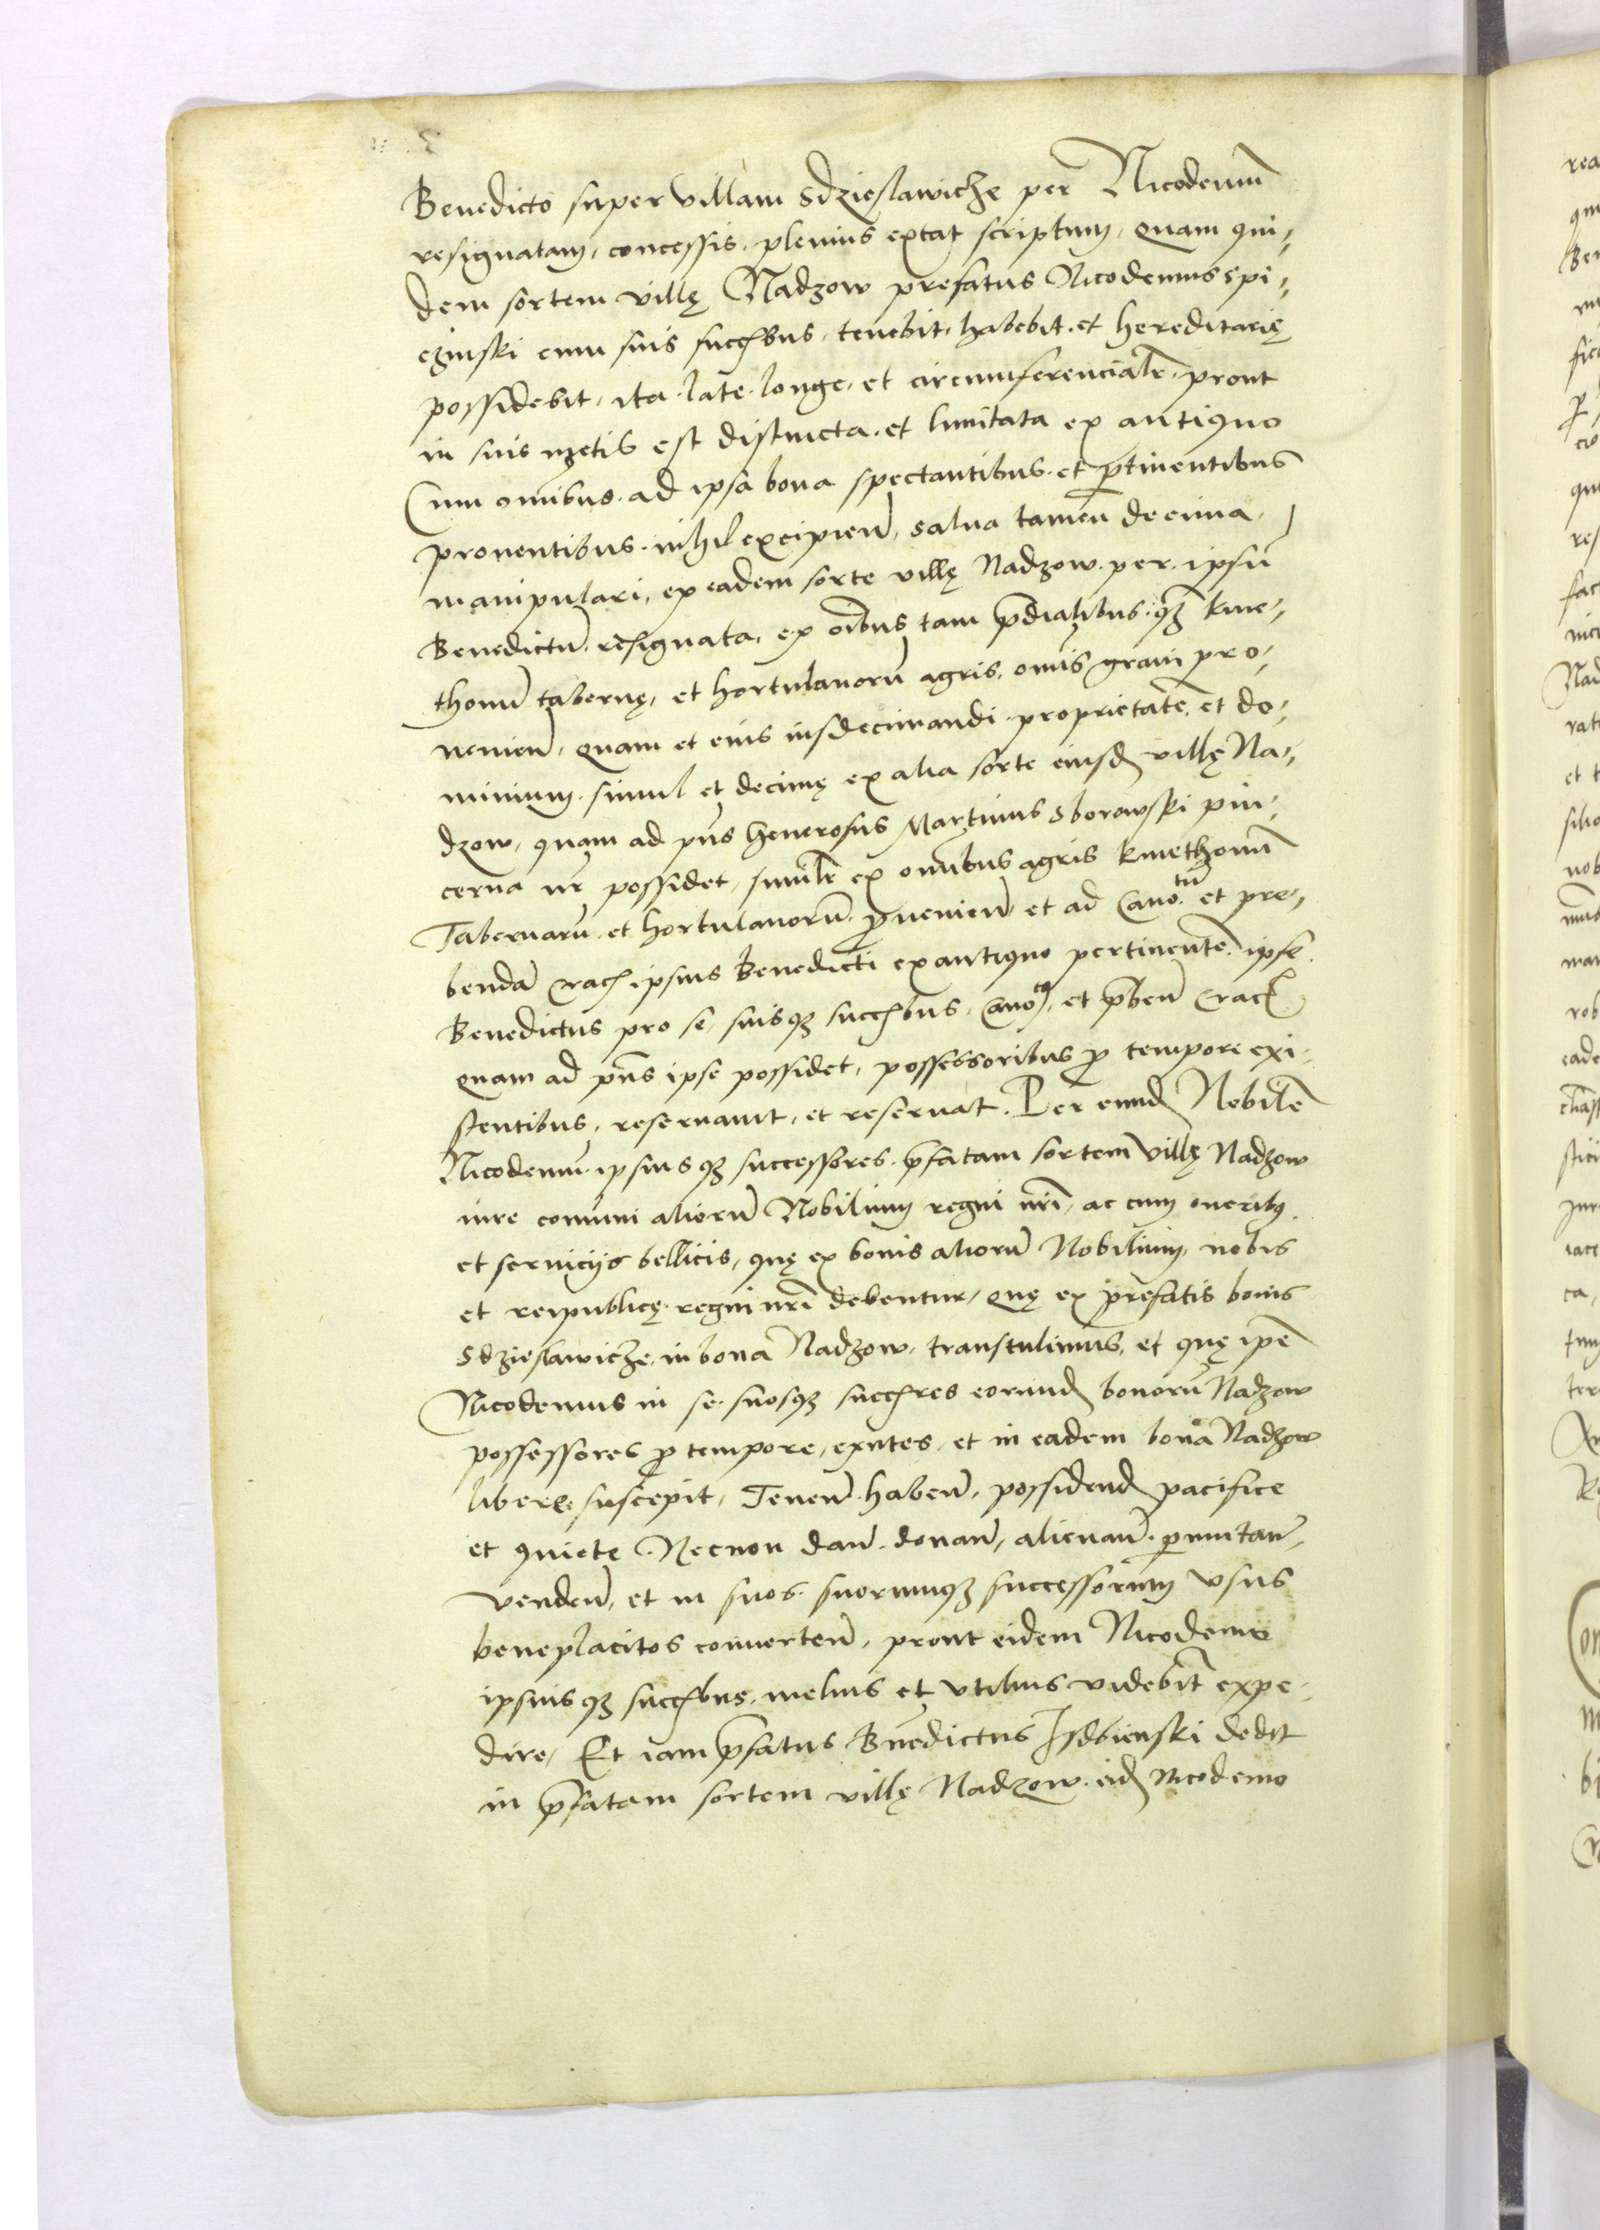 Benedicto super villam Sdzieslawicze per Nicodemū
resignatam, concessis, plenius extat scriptum, quam qui⸗
dem sortem villę Nadzow prefatus Nicodemus Spi⸗
czinski cum suis succ̄bus, tenebit, habebit, et hereditarię
possidebit, ita late longe, et circumferencialr̄, prout
in suis metis est distincta, et limitata ex antiquo
Cum omībus, ad ipsa bona spectantibus, et ꝑtinentibus
proventibus, nihil excipien̄, salva tamen decima
manipulari, ex eadem sorte villę Nadzow, per ipsū
Benedictū resignata, ex oībus tam p̄dialibus, qȝ kme⸗
thonū tabernę, et hortulanorū agris, omīs grani pro⸗
venien̄, quam et eius iusdecimandi, proprietatē, et do⸗
minium, simul et decimę ex alia sorte eiusd villę Na⸗
dzow, quam ad pn̄s Generosus Martinus Sborowski pin⸗
cerna nr̄ possidet, similr̄ ex omībus agris kmethonū
Tabernarū et hortulanorū ꝓvenien̄ et ad Cano.tū et pre⸗
bendā crac ipsius Benedicti ex antiquo pertinentē, ipse
Benedictus pro se, suisqȝ succ̄bus, Cano, et p̄ben̄ crac
quam ad pn̄s ipse possidet, possessoribus ꝓ tempore exi⸗
stentibus, reservavit, et reservat. Per eund Nobilē
Nicodemū ipsiusqȝ successores, p̄fatam sortem villę Nadzow
iure comuni aliorū Nobilium regni nrī, ac cum oneribȝ
et serviciis bellicis, quę ex bonis aliorū Nobilium, nobis
et reipublicę regni nrī debentur, quę ex prefatis bonis
Sdzieslawicze, in bona Nadzow, transtulimus, et quę ipē
Nicodemus in se suosqȝ succ̄res eorund bonorū Nadzow
possessores ꝓ tempore, exn̄tes, et in eadem bona Nadzow
libere suscepit, Tenen̄ haben̄, possidend pacifice
et quiete Necnon dan̄ donan̄, alienan̄ ꝑmutan̄,
venden̄, et in suos suorumqȝ successorum usus
beneplacitos converten̄, prout eidem Nicodemo
ipsiusqȝ succ̄bus, melius et utilius videbit̄ expe⸗
dire, Et iam p̄fatus Bn̄edictus Isdbienski dedit
in p̄fatam sortem villę Nadzow eid Nicodemo